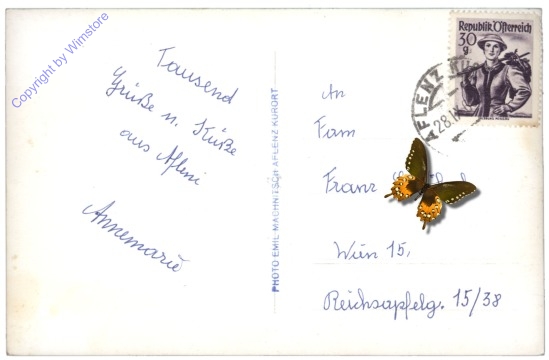 Copyright by Wimstore
Tausend
Grüße u. Küße
aus Aflenz
Annemarie
PHOTO EMIL MACHNITSCH AFLENZ KURORT
Republik Österreich
30
g
AFLENZ KU
28.
An
Fam
Franz
Wien 15,
Reichsapfelg. 15/38